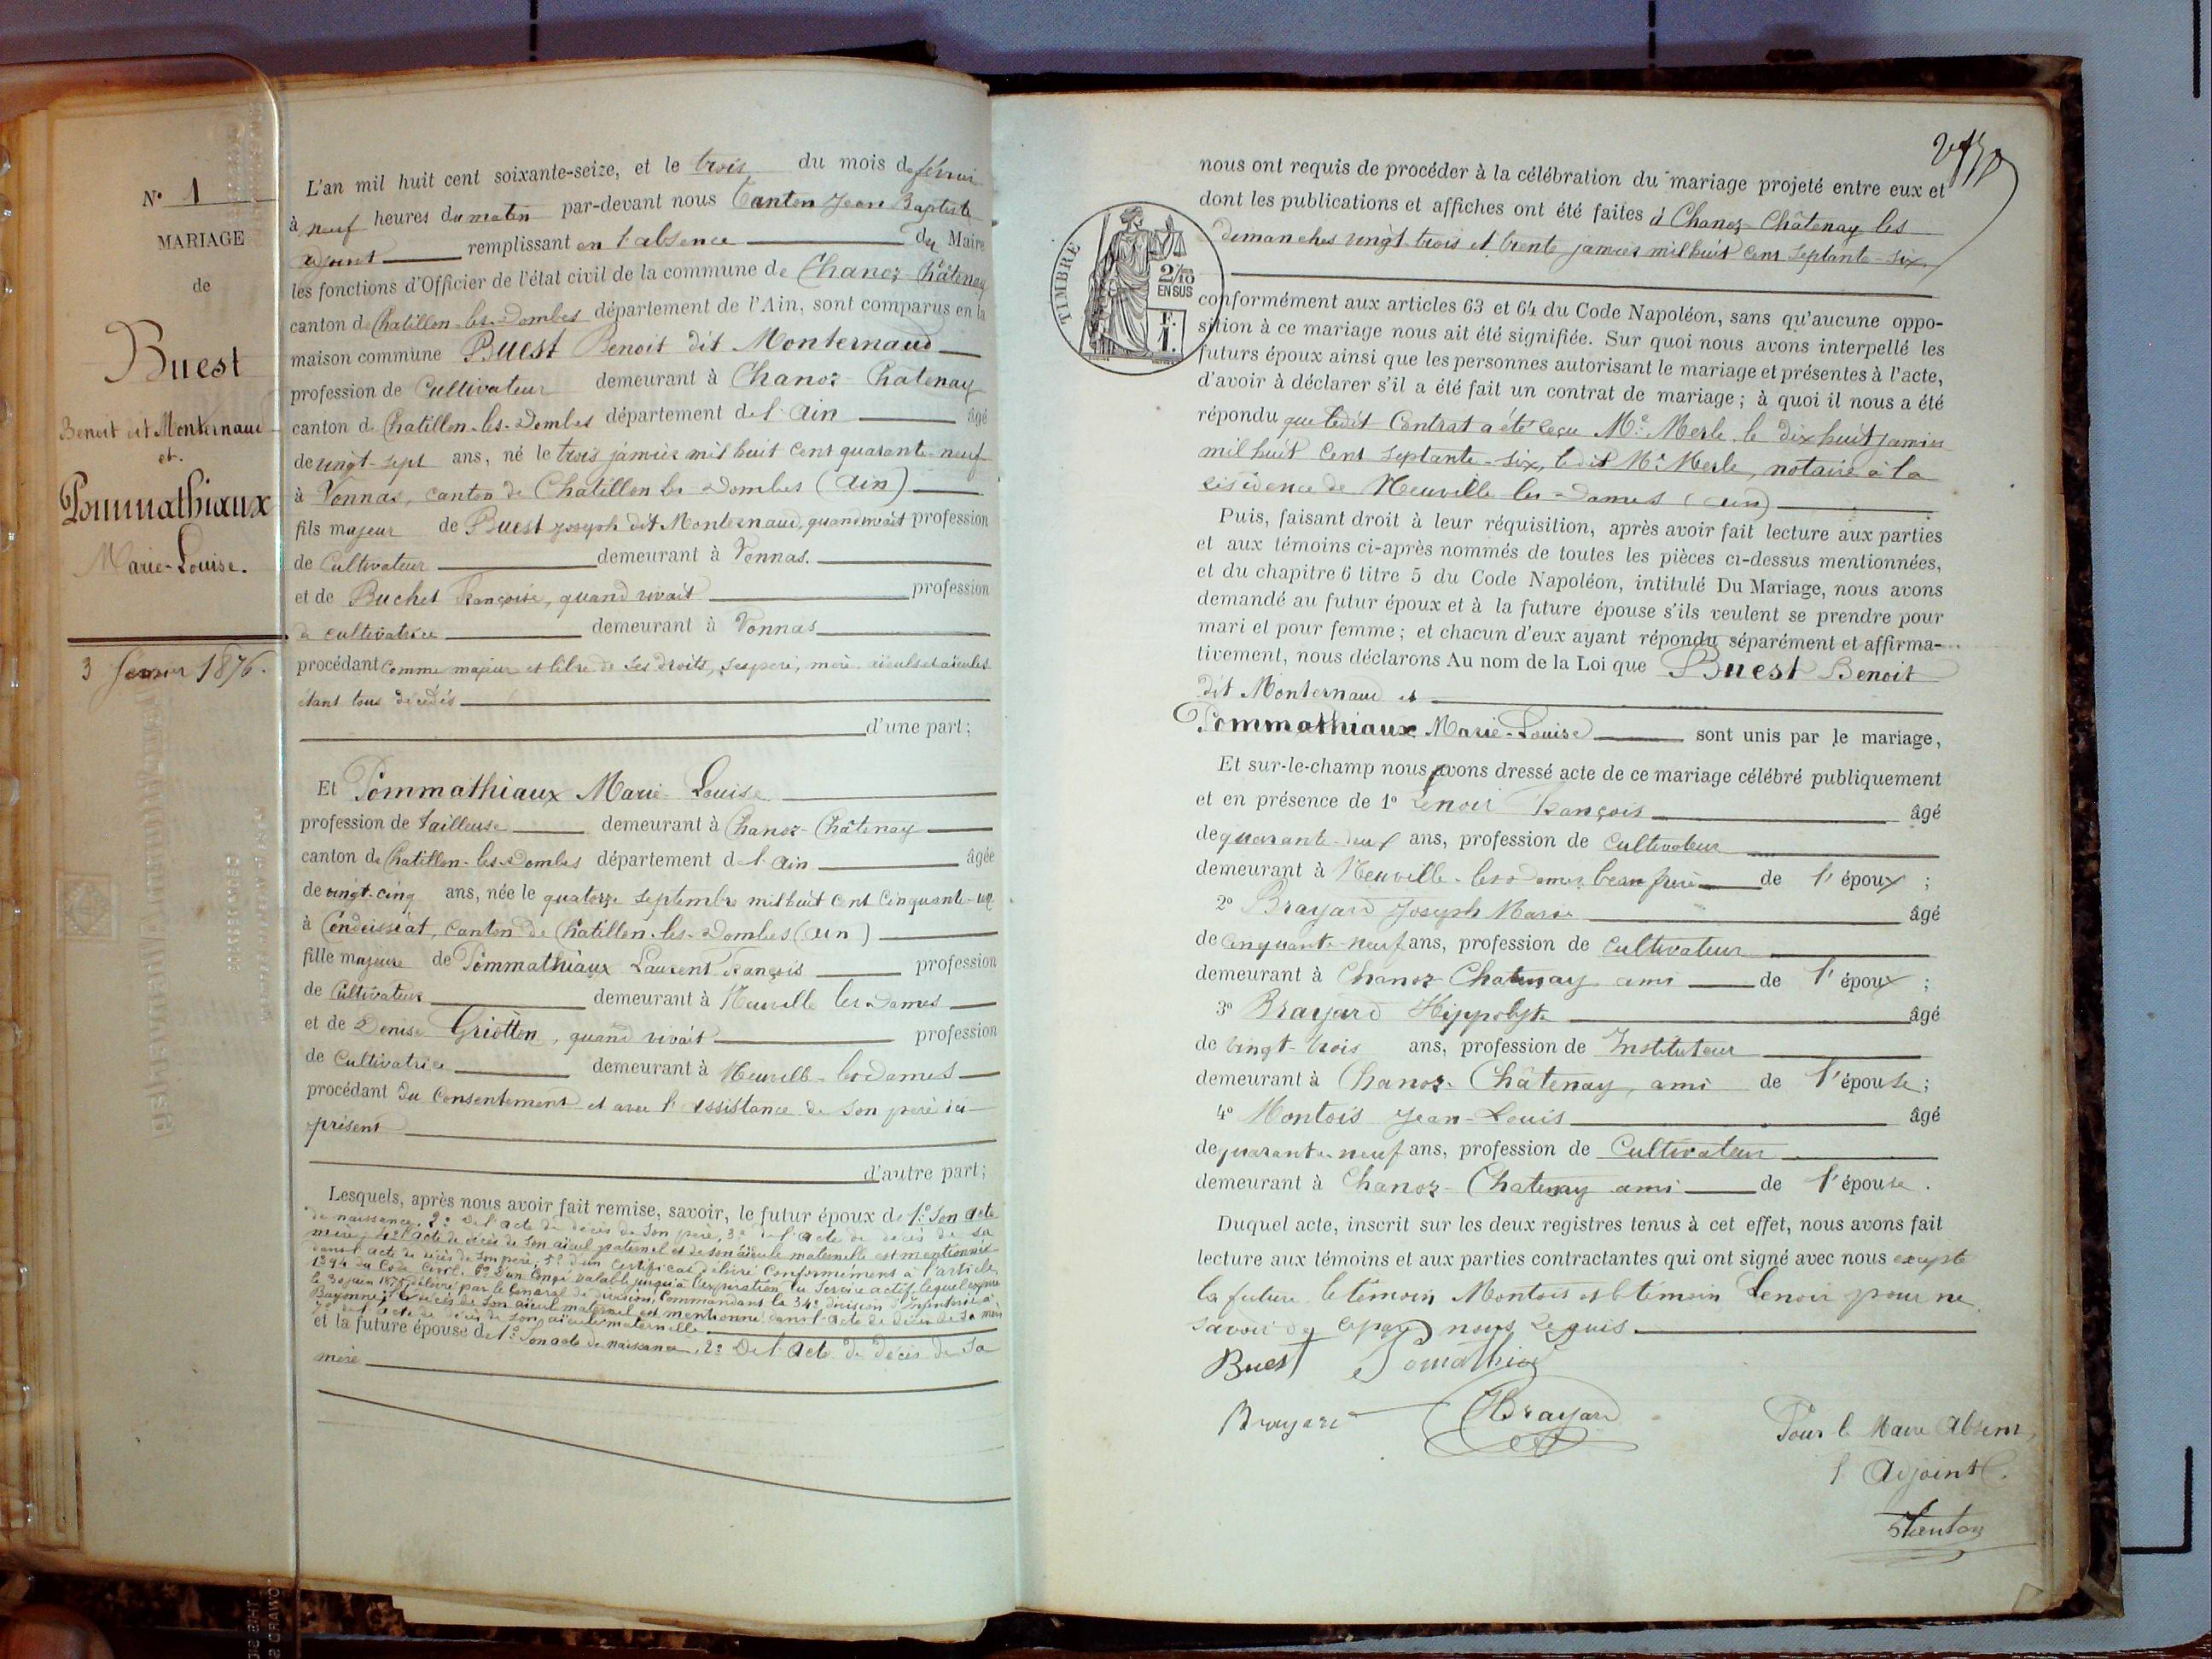 Nº 1
MARIAGE
de
Buest
Benoit dit Monternaud
et
Pommathiaux
Marie-Louise.
3 février 1876.
L'an mil huit cent soixante-seize, et le trois du mois de février
à neuf heures du matin par-devant nous Tanton Jean Baptiste
adjoint remplissant en l'absence du Maire
les fonctions d'Officier de l'état civil de la commune de Chanoz-Châtenay
canton de Chatillon-les-Dombes département de l'Ain, sont comparus en la
maison commune Buest Benoit dit Monternaud
profession de Cultivateur demeurant à Chanoz-Chatenay
canton de Chatillon-les-Dombes département de l'Ain âgé
de vingt-sept ans, né le trois janvier mil huit cent quarante-neuf
à Vonnas, canton de Chatillon les-Dombes (Ain)
fils majeur de Buest Joseph dit Monternaud, quand vivait profession
de Cultivateur demeurant à Vonnas.
et de Buchet Françoise, quand vivait profession
de cultivatrice demeurant à Vonnas
procédant comme majeur et libre de ses droits, ses père, mère aïeuls et aïeules
étant tous décédés
d'une part;
Et Pommathiaux Marie-Louise
profession de tailleuse demeurant à Chanoz-Châtenay
canton de Chatillon-les-Dombes département de l'Ain âgée
de vingt-cinq ans, née le quatorze septembre mil huit cent cinquante-un
à Condeissiat, canton de Châtillon-les-Dombes (Ain)
fille majeure de Pommathiaux Laurent François profession
de Cultivateur demeurant à Neuville les-Dames
et de Denise Griotton, quand vivait profession
de Cultivatrice demeurant à Neuville-les-Dames
procédant du Consentement et avec l'assistance de son père ici
présent
d'autre part;
Lesquels, après nous avoir fait remise, savoir, le futur époux de 1º Son acte
de naissance. 2º De l'acte de décès de son père, 3º de l'acte de décès de sa
mère, 4º l'acte de décès de son aïeul paternel et de son aïeule maternelle est mentionné
dans l'acte de décès de son père, 5º d'un certificat délivré Conformément à l'article
1394 du Code Civil. 6º D'un Congé valable jusqu'à l'expiration du Service actif, lequel expire
le 30 juin 1875 délivré par le Général de division Commandant la 34e division d'Infanterie à
Bayonne; le décès de son aïeul maternel est mentionné dans l'acte de décès de sa mère
7º de l'acte de décès de son aïeule maternelle
et la future épouse de 1º Son acte de naissance, 2º De l'acte de décès de sa
mère
nous ont requis de procéder à la célébration du mariage projeté entre eux et
dont les publications et affiches ont été faites à Chanoz-Châtenay les
dimanches vingt-trois et trente janvier mil huit cent septante-six
TIMBRE
2/10
EN SUS
F.
1.
conformément aux articles 63 et 64 du Code Napoléon, sans qu'aucune oppo-
sition à ce mariage nous ait été signifiée. Sur quoi nous avons interpellé les
futurs époux ainsi que les personnes autorisant le mariage et présentes à l'acte,
d'avoir à déclarer s'il a été fait un contrat de mariage; à quoi il nous a été
répondu que ledit Contrat a été reçu Me Merle le dix huit janvier
mil huit cent septante-six, ledit Me Merle, notaire à la
résidence de Neuville les-Dames (Ain)
Puis, faisant droit à leur réquisition, après avoir fait lecture aux parties
et aux témoins ci-après nommés de toutes les pièces ci-dessus mentionnées,
et du chapitre 6 titre 5 du Code Napoléon, intitulé Du Mariage, nous avons
demandé au futur époux et à la future épouse s'ils veulent se prendre pour
mari et pour femme; et chacun d'eux ayant répondu séparément et affirma-
tivement, nous déclarons Au nom de la Loi que Buest Benoit
dit Monternaud et
Pommathiaux Marie-Louise sont unis par le mariage,
Et sur-le-champ nous avons dressé acte de ce mariage célébré publiquement
et en présence de 1º Lenoir François âgé
de quarante-deux ans, profession de Cultivateur
demeurant à Neuville-les-Dames, beau frère de l'époux;
2º Brayard Joseph Marie âgé
de cinquante-neuf ans, profession de cultivateur
demeurant à Chanoz-Chatenay ami de l'époux;
3º Brayard Hippolyte âgé
de vingt-trois ans, profession de Instituteur
demeurant à Chanoz-Châtenay, ami de l'épouse;
4º Montois Jean-Louis âgé
de quarante-neuf ans, profession de Cultivateur
demeurant à Chanoz-Chatenay ami de l'épouse.
Duquel acte, inscrit sur les deux registres tenus à cet effet, nous avons fait
lecture aux témoins et aux parties contractantes qui ont signé avec nous excepté
la future le témoin Montois et le témoin Lenoir pour ne
savoir de ce par nous requis.
Buest Pomathios
Brayard HBrayard
Pour le Maire Absent,
l'Adjoint
Tanton